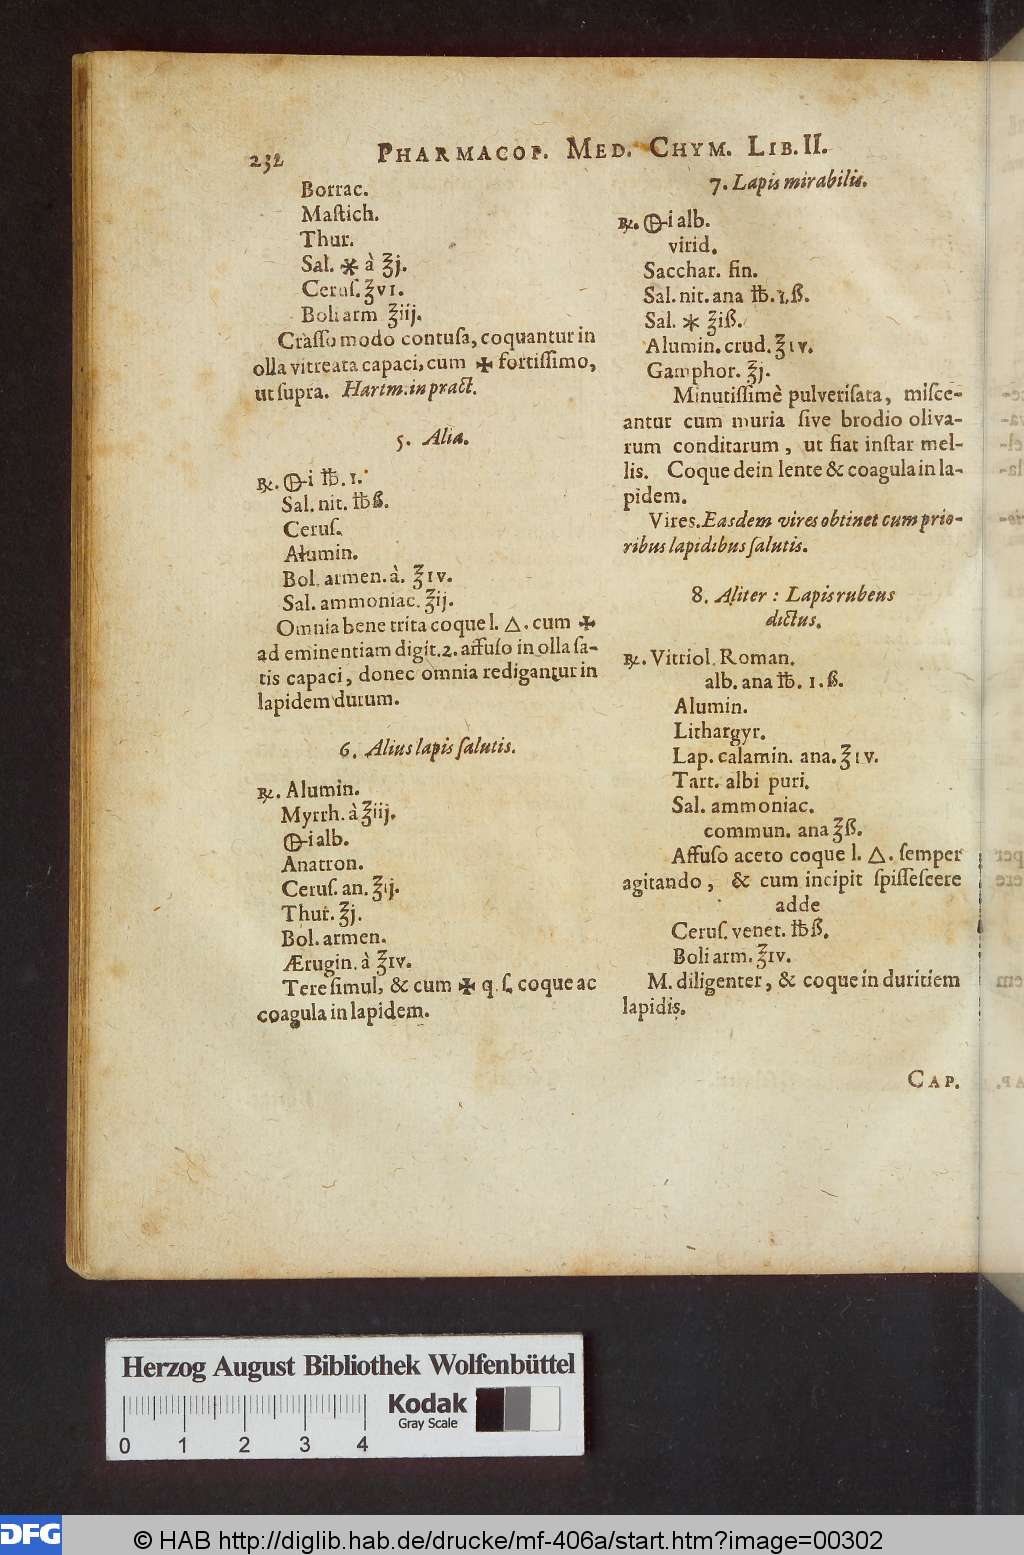 232 PHARMACOP. MED. CHYM. LIB. II.
Borrac.
Maſtich.
Thur.
Sal. ✱ à ℥j.
Ceruſ. ℥VI.
Boli arm ℥iij.
Craſſo modo contuſa, coquantur in
olla vitreata capaci, cum ✠ fortiſſimo,
ut ſupra. Hartm. in pract.
5. Alia.
℞. 🜖i ℔. 1.
Sal. nit. ℔ß.
Ceruſ.
Alumin.
Bol. armen. à. ℥IV.
Sal. ammoniac. ℥ij.
Omnia bene trita coque l. △. cum ✠
ad eminentiam digit. 2. affuſo in olla ſa-
tis capaci, donec omnia redigantur in
lapidem durum.
6. Alius lapis ſalutis.
℞. Alumin.
Myrrh. à ℥iij.
🜖i alb.
Anatron.
Ceruſ. an. ℥ij.
Thur. ℥j.
Bol. armen.
Ærugin. à ℥IV.
Tere ſimul, & cum ✠ q. ſ. coque ac
coagula in lapidem.
7. Lapis mirabilis.
℞. 🜖i alb.
virid.
Sacchar. fin.
Sal. nit. ana ℔. 1. ß.
Sal. ✱ ℥iß.
Alumin. crud. ℥IV.
Gamphor. ℥j.
Minutiſſimè pulveriſata, miſce-
antur cum muria ſive brodio oliva-
rum conditarum, ut fiat inſtar mel-
lis. Coque dein lente & coagula in la-
pidem.
Vires. Easdem vires obtinet cum prio-
ribus lapidibus ſalutis.
8. Aliter : Lapis rubens
dictus.
℞. Vitriol. Roman.
alb. ana ℔. 1. ß.
Alumin.
Lithargyr.
Lap. calamin. ana. ℥IV.
Tart. albi puri.
Sal. ammoniac.
commun. ana ℥ß.
Affuſo aceto coque l. △. ſemper
agitando, & cum incipit ſpiſſeſcere
adde
Ceruſ. venet. ℔ß.
Boli arm. ℥IV.
M. diligenter, & coque in duritiem
lapidis.
CAP.
Herzog August Bibliothek Wolfenbüttel
0 1 2 3 4
Kodak
Gray Scale
DFG
© HAB http://diglib.hab.de/drucke/mf-406a/start.htm?image=00302